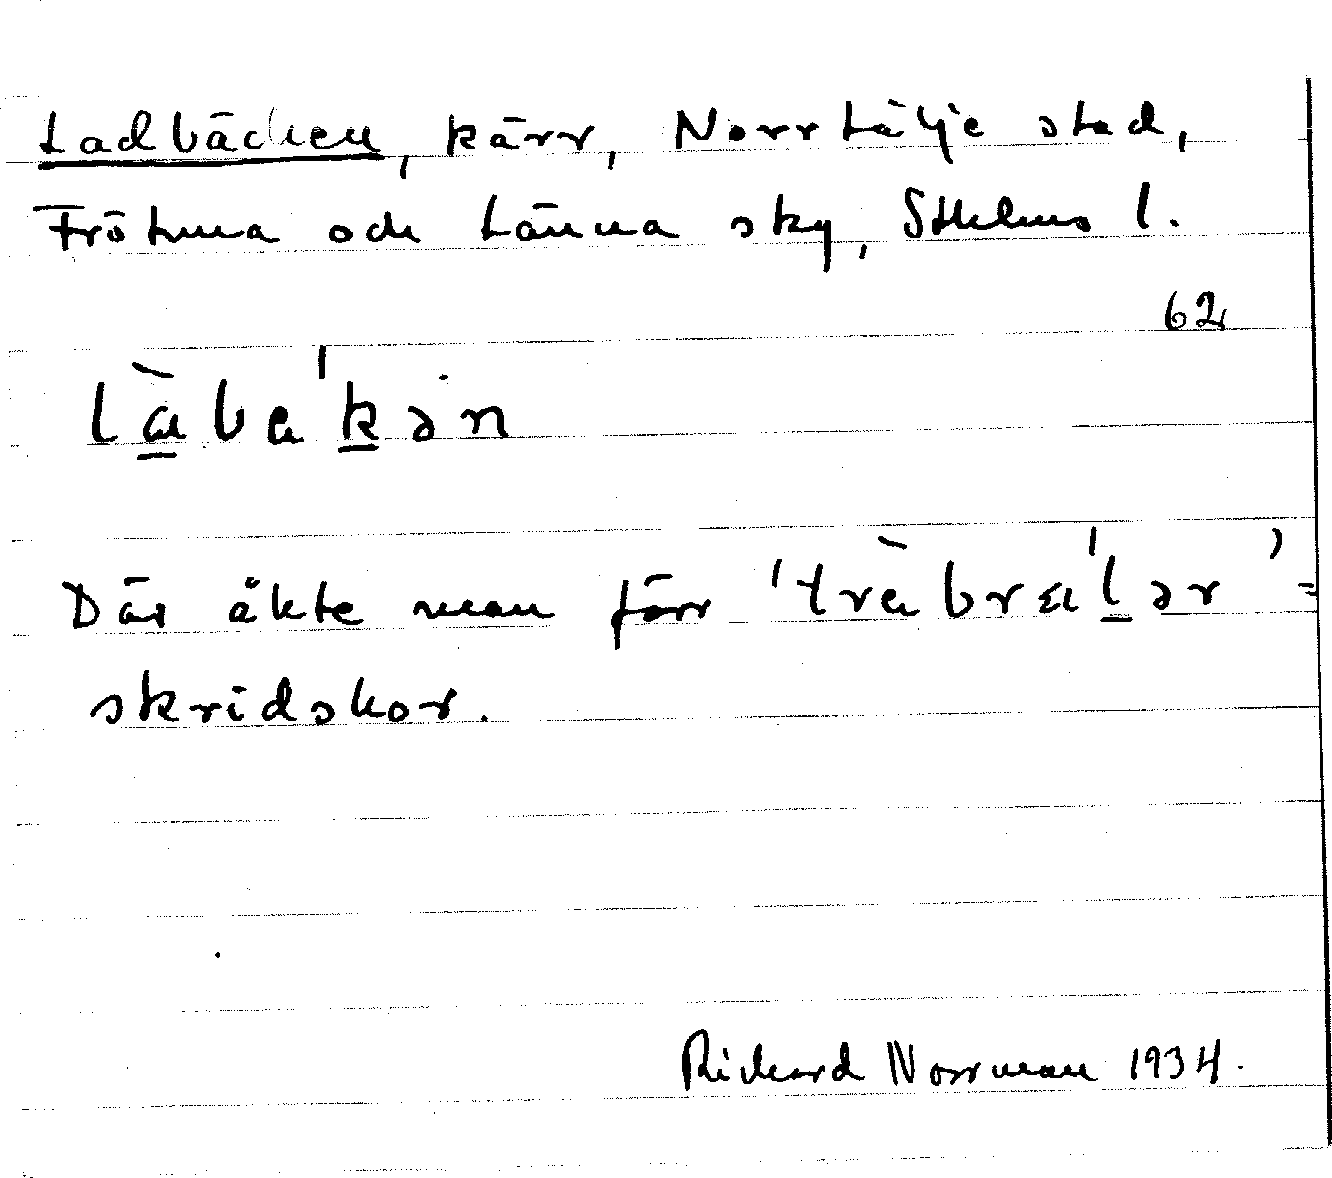 Ladbäcken, kärr, Norrtälje stad,
Frötuna och Länna sky, Sthlms l.
62
là̱ba'ḵən
Där åkte man förr 'tràbræ'ḻər' =
skridskor.
Rickard Norrman 1934.